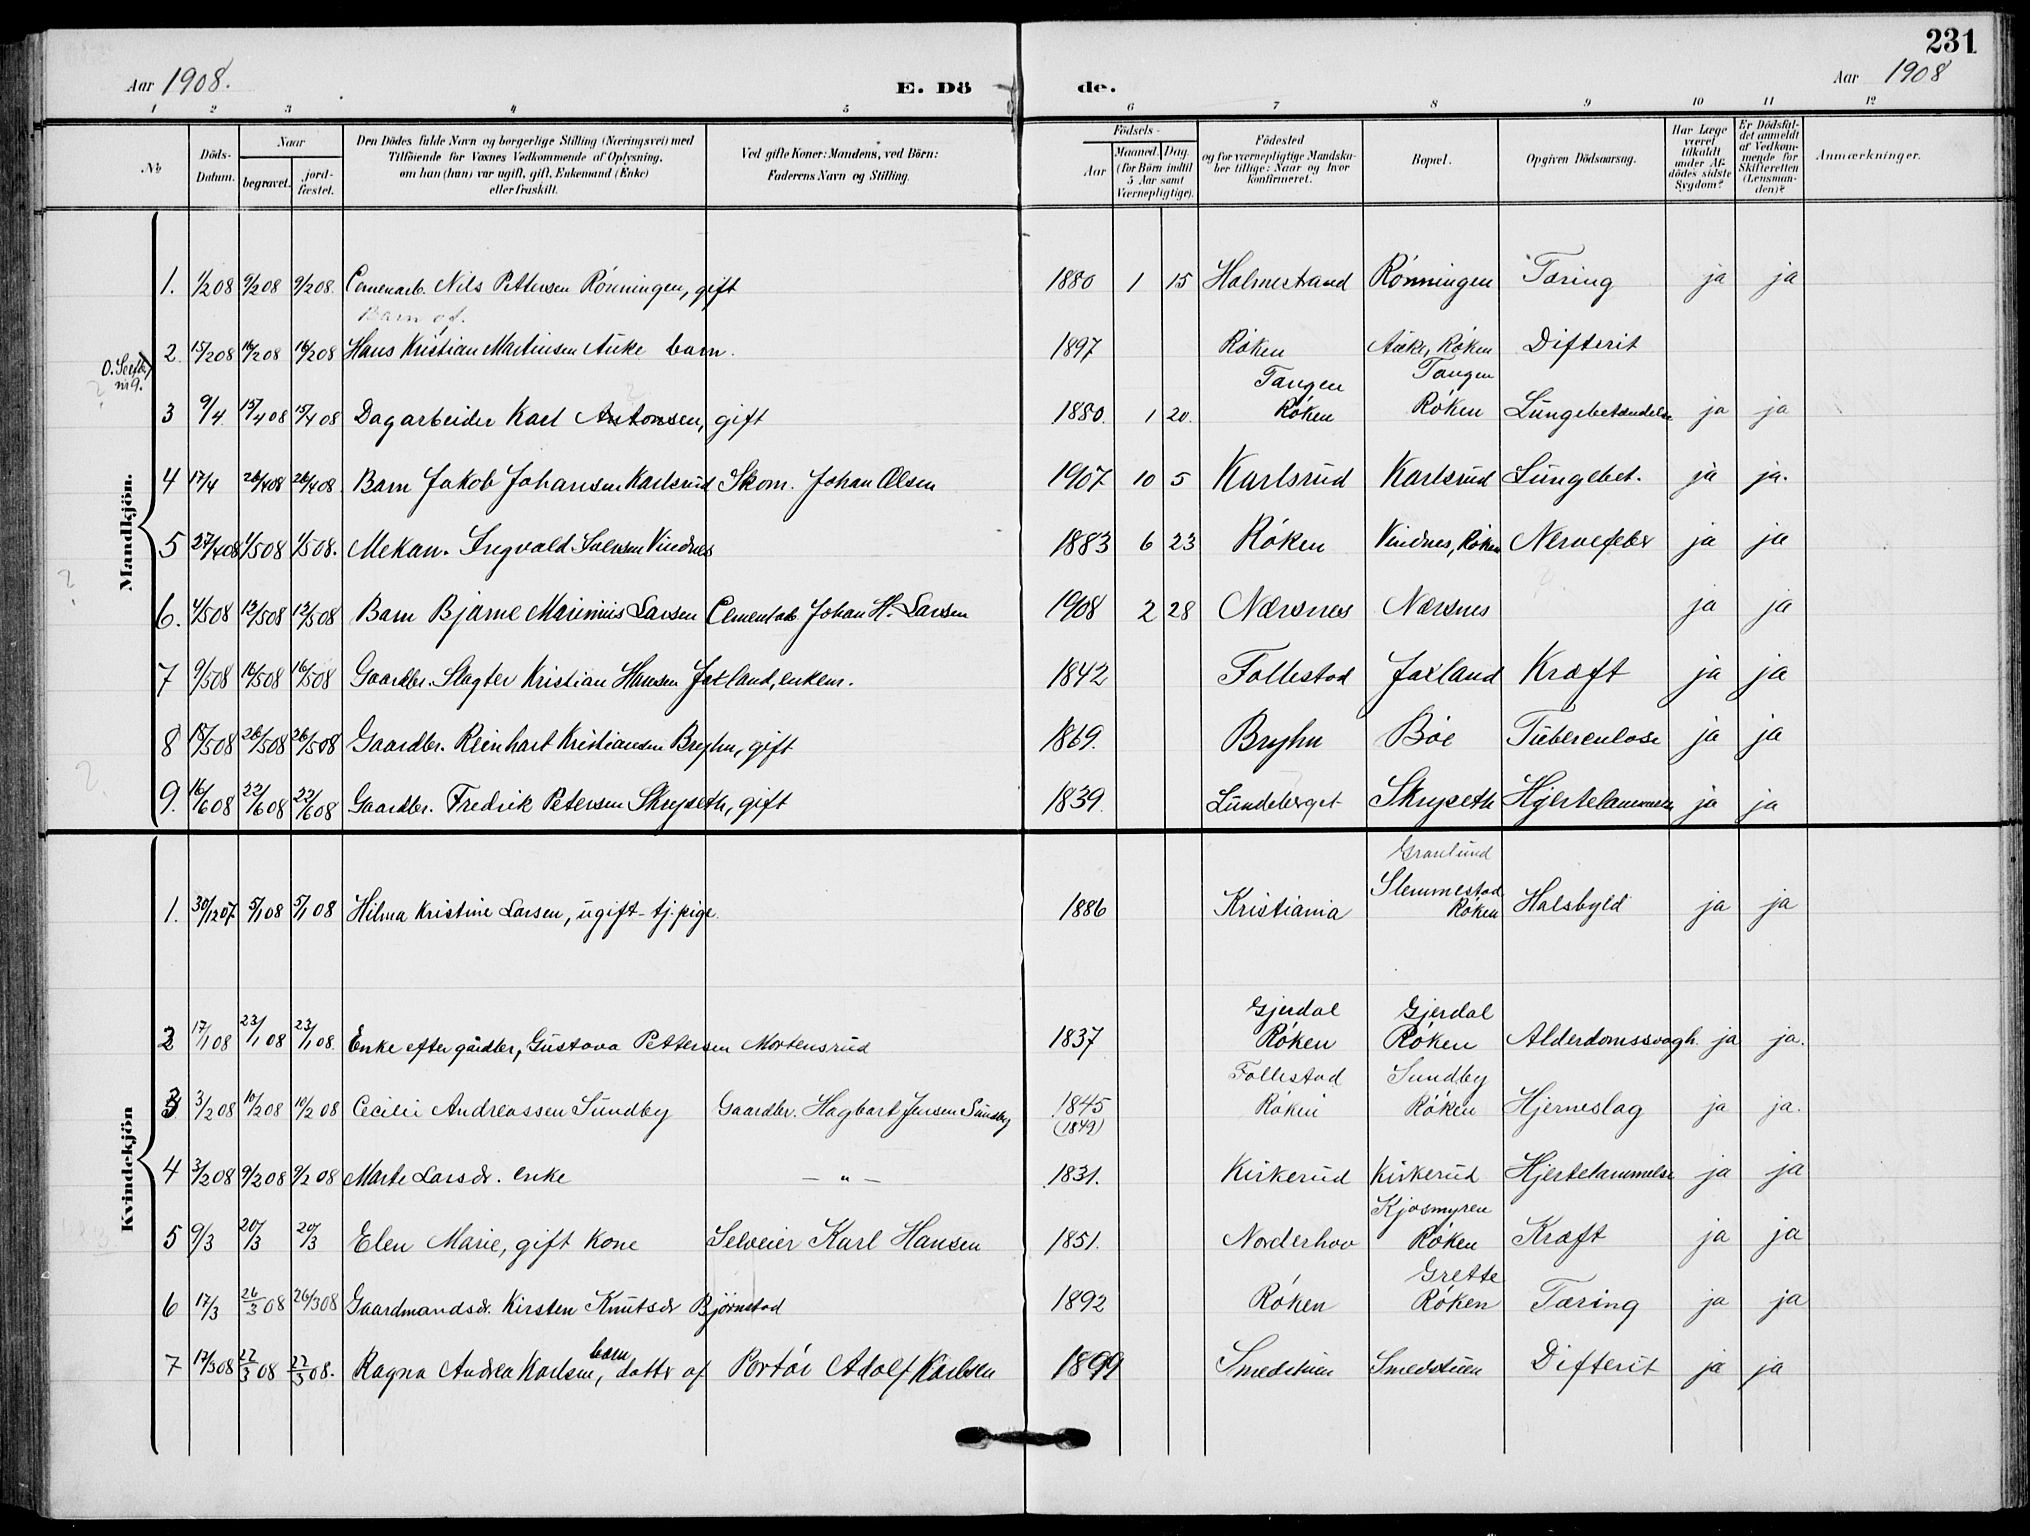 231
Aar 1908. E. Dö de. Aar 1908
1 2 3 4 5 6 7 8 9 10 11 12
No
Döds-Datum.
Naar
begravet.
jord-fæstet.
Den Dödes fulde Navn og borgerlige Stilling (Næringsvei) med
Tilföiende for Voxnes Vedkommende af Oplysning,
om han (hun) var ugift, gift, Enkemand (Enke)
eller fraskilt.
Ved gifte Koner: Mandens, ved Börn:
Faderens Navn og Stilling.
Födsels-
Aar
Maaned. Dag.
(for Börn indtil
5 Aar samt
Værnepligtige).
Födested
og for værnepligtige Mandska-
ber tillige: Naar og hvor
konfirmeret.
Bopæl.
Opgiven Dödsaarsag.
Har Læge
været
tilkaldt
under Af-
dödes sidste
Sygdom?
Er Dödsfal-
det anmeldt
af Vedkom-
mende for
Skifteretten
(Lensman-
den)?
Anmærkninger.
Mandkjön.
1. 1/2 08 9/2 08 9/2 08. Cemenarb. Nils Pettersen Rönningen, gift 1880 1 15 Holmestrand Rönningen Tæring ja ja
Barn af.
2. 15/2 08 16/2 08 16/2 08 Hans Kristian Martinsen Auke barn. 1897 Röken Auke, Röken Difterit
nr 9.
Tangen Tangen
3 9/4 15/4 08 15/4 08 Dagarbeider Karl Antonsen, gift 1880. 1 20. Röken Röken Lungebetændelse ja ja
4 17/4 26/4 08 26/4 08 Barn Jakob Johansen Karlsrud Skom. Johan Olsen 1907 10 5 Karlsrud Karlsrud Lungebet. ja ja.
5 27/4 08 1/5 08 1/5 08. Mekan. Ingvald Vindnes 1883 6 23 Röken Vindnes, Röken Nervefeber ja ja
6. 4/5 08 13/5 08 13/5 08 Barn Bjarne Marinius Larsen Cementarb. Johan H. Larsen 1908 2 28 Nærsnes Nærsnes ja ja
7 9/5 08 16/5 08 16/5 08 Gaardbr. Slagter Kristian Hansen Jaxland, enkem. 1842 Follestad Jaxland Kræft ja ja
8 18/5 08 26/5 08 26/5 08 Gaardbr. Reinhart Kristiansen Bryhn, gift 1869. Bryhn Böe Tuberculose ja ja
9. 16/6 08 22/6 08 22/6 08 Gaardbr. Fredrik Petersen Skryseth, gift 1839. Lundeberget Skryseth Hjertelammelse ja ja
Kvindekjön
Granlund
Slemmestad
1. 30/12 07 5/1 08 5/1 08 Hilma Kristine Larsen, ugift - tj.pige 1886 Kristiania Röken Halsbyld ja ja
Gjerdal Gjerdal
2 17/1 08 23/1 08 23/1 08 Enke efter gårdbr, Gustava Pettersen Mortensrud 1837 Röken Röken Alderdomssvagh. ja ja.
Follestad Sundby
3 3/2 08 10/2 08 10/2 08 Cecilie Andreassen Sundby Gaardbr. Hagbart Jensen Sundby 1845 Röken Röken Hjerneslag ja ja.
(1849)
4 3/2 08 9/2 08 9/2 08 Marte Larsdr. enke - " - 1831. Kirkerud Kirkerud Hjertelammelse ja ja
Kjosmyren
5 9/3 20/3 20/3 Elen Marie, gift kone Selveier Karl Hansen 1851. Norderhov Röken Kræft ja ja
Grette
6 17/3 26/3 08 26/3 08 Gaardmandsdr. Kirsten Knutsdr Bjørnstad 1892 Röken Röken Tæring ja ja
barn
7 17/3 08 22/3 08 22/3 08. Ragna Andrea Karlsen, datter af Portör Adolf Karlsen 1899 Smedstuen Smedstuen Difterit ja ja